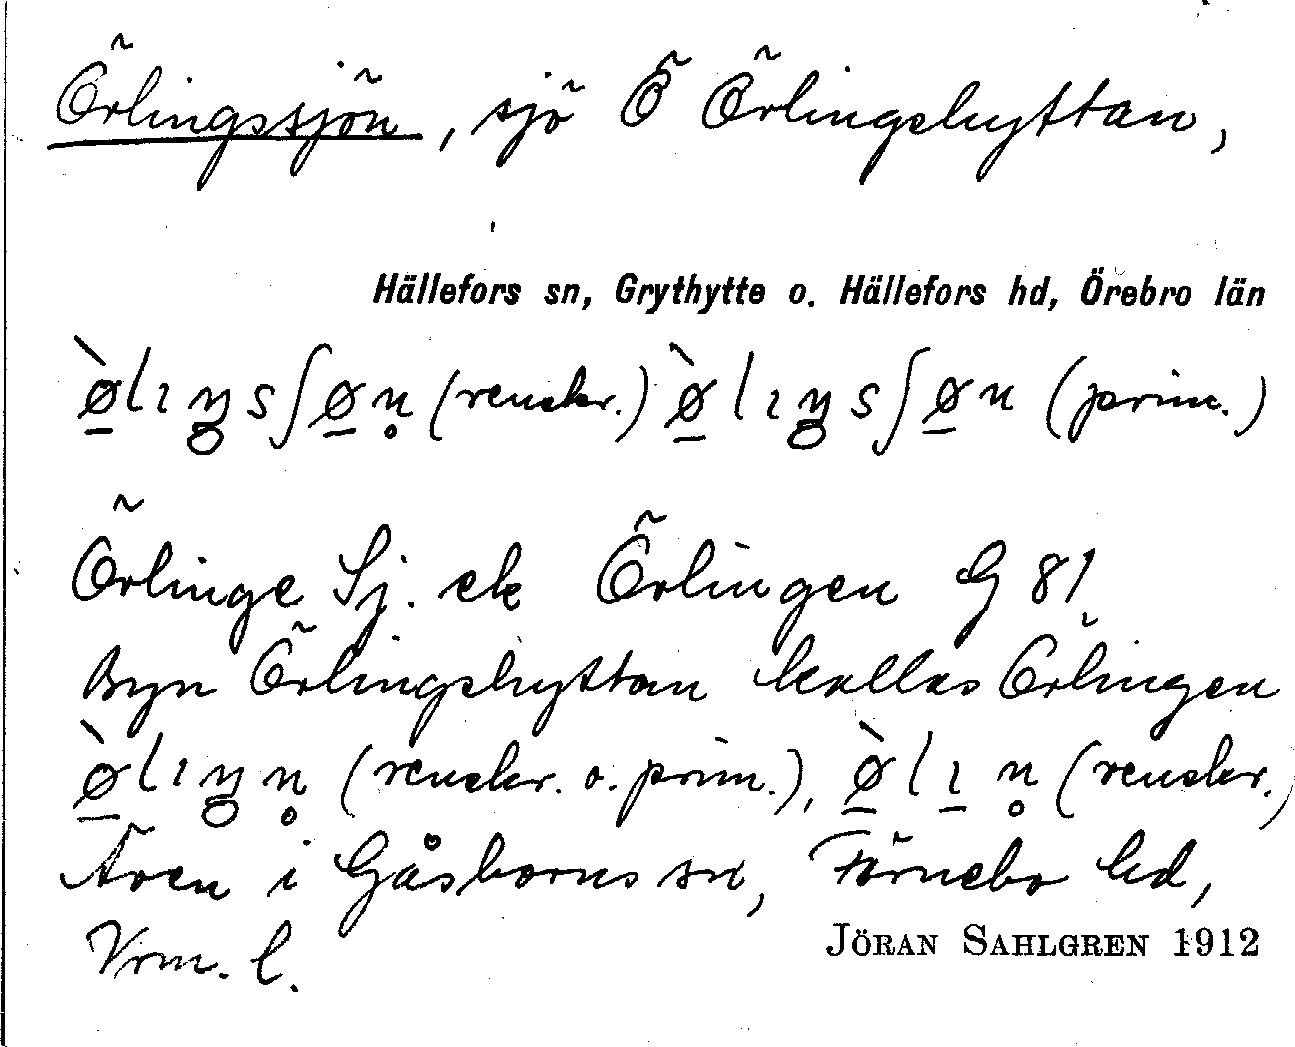 Örlingssjön, sjö Ö Örlingshyttan,
Hällefors sn, Grythytte o. Hällefors hd, Örebro län
(renskr.) (prim.)
Örlinge Sj. ek Örlingen G 81
Byn Örlingshyttan kallas Örlingen
(renskr. o. prim.), (renskr.)
Även i Gåsborns sn, Färnebo hd,
Vrm. l.
JÖRAN SAHLGREN 1912